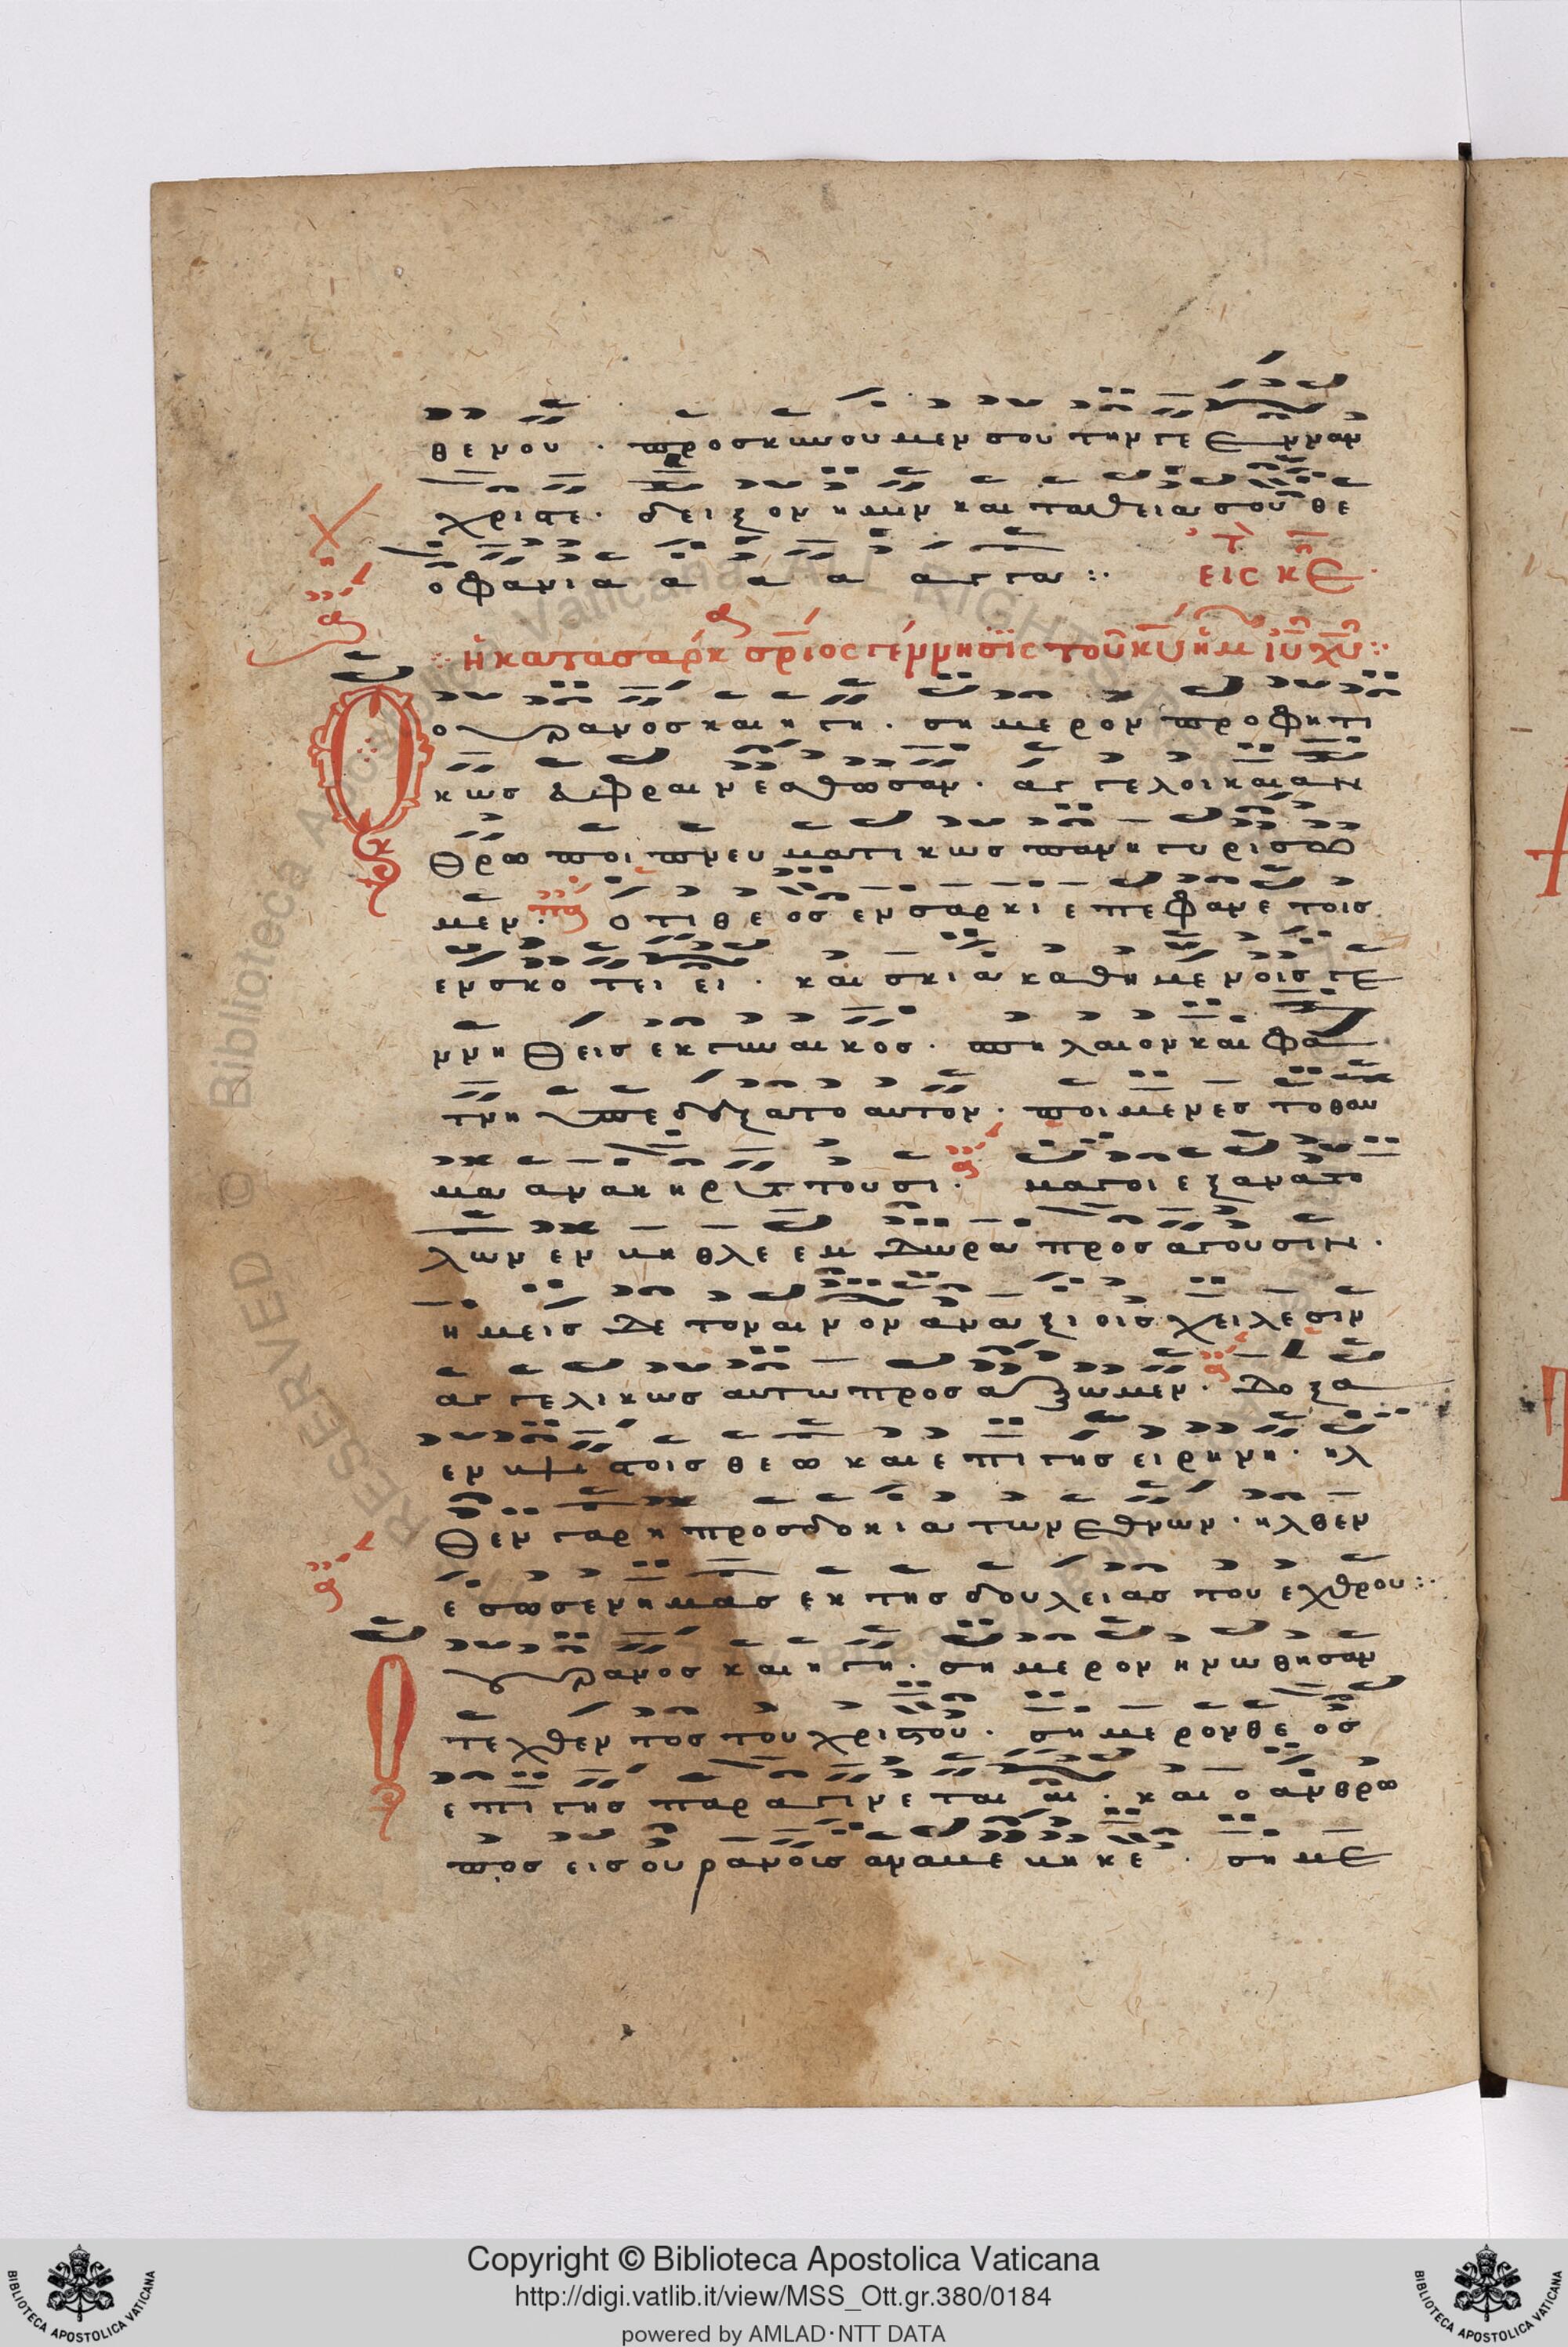 θενου · προσκυνουμεν σου την γε ενναν
χριστε · δειξον ημιν και τα θεια σου θε
οφανια α α α αγια :·
εις κε
η κατα σαρκ οριος γεννησις του κυ ημ ιυ χυ :·
Ο ουρανος και η γη · σημερον προφητι
κως ευφραινεσθωσαν · αγγελοι και αν
θρωποι πνευματικως πανηγυρισω
μεν · οτι θεος εν σαρκι επεφανε τοις
εν σκοτει ει · και σκια καθημενοις γε
ννηθεις εκ γυναικος · σπηλαιον και φα
τνη υπεδεξατο αυτον · ποιμενες το θαυ
μα ανακηρυττουσι · μαγοι εξ ανατο
λων εν βηθλεεμ δωρα προσαγουσιν ·
ημεις δε τον αινον αναξιοις χειλεσιν
αγγελικως αυτω προσαξωμεν · δοξα
εν υψιστοις θεω και επι γης ειρηνη · ηλ
θεν γαρ η προσδοκια των εθνων · ηλθεν
εσωσεν ημας εκ της δουλειας του εχθρου :·
Ο υρανος και η γη · σημερον ηνωθησαν
τεχθεντος του χριστου · σημερον θεος
επι γης παραγινεται αι · και ο ανθρω
πος εις ουρανοις αναβεβηκε · σημε
Copyright © Biblioteca Apostolica Vaticana
http://digi.vatlib.it/view/MSS_Ott.gr.380/0184
powered by AMLAD·NTT DATA
BIBLIOTECA APOSTOLICA VATICANA
BIBLIOTECA APOSTOLICA VATICANA